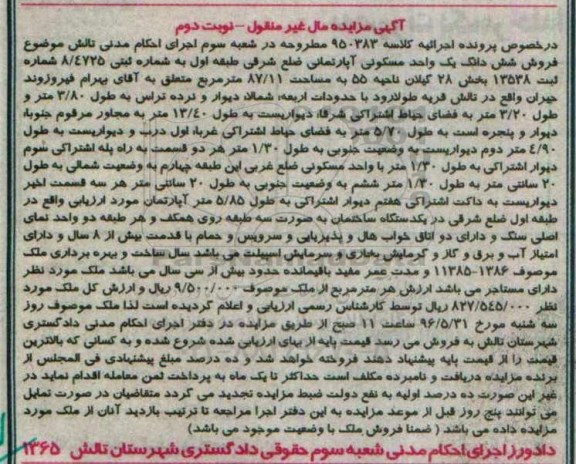 آگهی مزایده مال غیر منقول – نوبت دوم
درخصوص پرونده اجرائیه کلاسه ۹۵۰۳۸۳ مطروحه در شعبه سوم اجرای احکام مدنی تالش موضوع
فروش شش دانگ یک واحد مسکونی آپارتمانی ضلع شرقی طبقه اول به شماره ثبتی ۸/۴۷۲۵ شماره
ثبت ۱۳۵۳۸ بخش ۲۸ گیلان ناحیه ۵۵ به مساحت ۸۷/۱۱ مترمربع متعلق به آقای بهرام فیروزوند
جیران واقع در تالش قریه طولارود با حدودات اربعه: شمالا، دیوار و نرده تراس به طول ۳/۸۰ متر و
۳/۲۰ متر به فضای حیاط اشتراکی شرقا، دیواریست به طول ۱۳/۴۰ متر به مجاور مرقوم جنوبا،
دیوار و پنجره است به طول ۵/۷۰ متر به فضای حیاط اشتراکی غربا، اول درب و دیواریست به طول
۴/۹۰ متر دوم دیواریست به وضعیت جنوبی به طول ۱/۳۰ متر هر دو قسمت به راه پله اشتراکی سوم
دیوار اشتراکی به طول ۱/۳۰ متر با واحد مسکونی ضلع غربی این طبقه چهارم به وضعیت شمالی به طول
۲۰ سانتی متر به طول ۱/۳۰ متر ششم به وضعیت جنوبی به طول ۲۰ سانتی متر هر سه قسمت اخیر
دیواریست به داکت اشتراکی هفتم دیوار اشتراکی به طول ۵/۸۵ متر آپارتمان مورد ارزیابی واقع در
طبقه اول ضلع شرقی در یکدستگاه ساختمان به صورت سه طبقه روی همکف و هر طبقه دو واحد نمای
اصلی سنگ و دارای دو اتاق خواب هال و پذیرایی و سرویس و حمام با قدمت بیش از ۸ سال و دارای
امتیاز آب و برق و گاز و گرمایش بخاری و سرمایش اسپیلت می باشد سال ساخت و بهره برداری ملک
موصوف ۱۳۸۶-۱۱۳۸۵ و مدت عمر مفید باقیمانده حدود بیش از سی سال می باشد ملک مورد نظر
دارای مستاجر می باشد ارزش هر مترمربع از ملک موصوف ۹/۵۰۰/۰۰۰ ریال و ارزش کل ملک مورد
نظر ۸۲۷/۵۴۵/۰۰۰ ریال توسط کارشناس رسمی ارزیابی و اعلام گردیده است لذا ملک موصوف روز
سه شنبه مورخ ۹۶/۵/۳۱ ساعت ۱۱ صبح از طریق مزایده در دفتر اجرای احکام مدنی دادگستری
شهرستان تالش به فروش می رسد قیمت پایه از بهای ارزیابی شده شروع شده و به کسانی که بالاترین
قیمت را از قیمت پایه پیشنهاد دهند فروخته خواهد شد و ده درصد مبلغ پیشنهادی فی المجلس از
برنده مزایده دریافت و نامبرده مکلف است حداکثر تا یک ماه به پرداخت ثمن معامله اقدام نماید در
غیر این صورت ده درصد اولیه به نفع دولت ضبط مزایده تجدید می گردد متقاضیان در صورت تمایل
می توانند پنج روز قبل از موعد مزایده به این دفتر اجرا مراجعه تا ترتیب بازدید آنان از ملک مورد
مزایده داده می باشد ( ضمنا فروش ملک با وضعیت موجود می باشد)
دادورز اجرای احکام مدنی شعبه سوم حقوقی دادگستری شهرستان تالش ۱۳۶۵